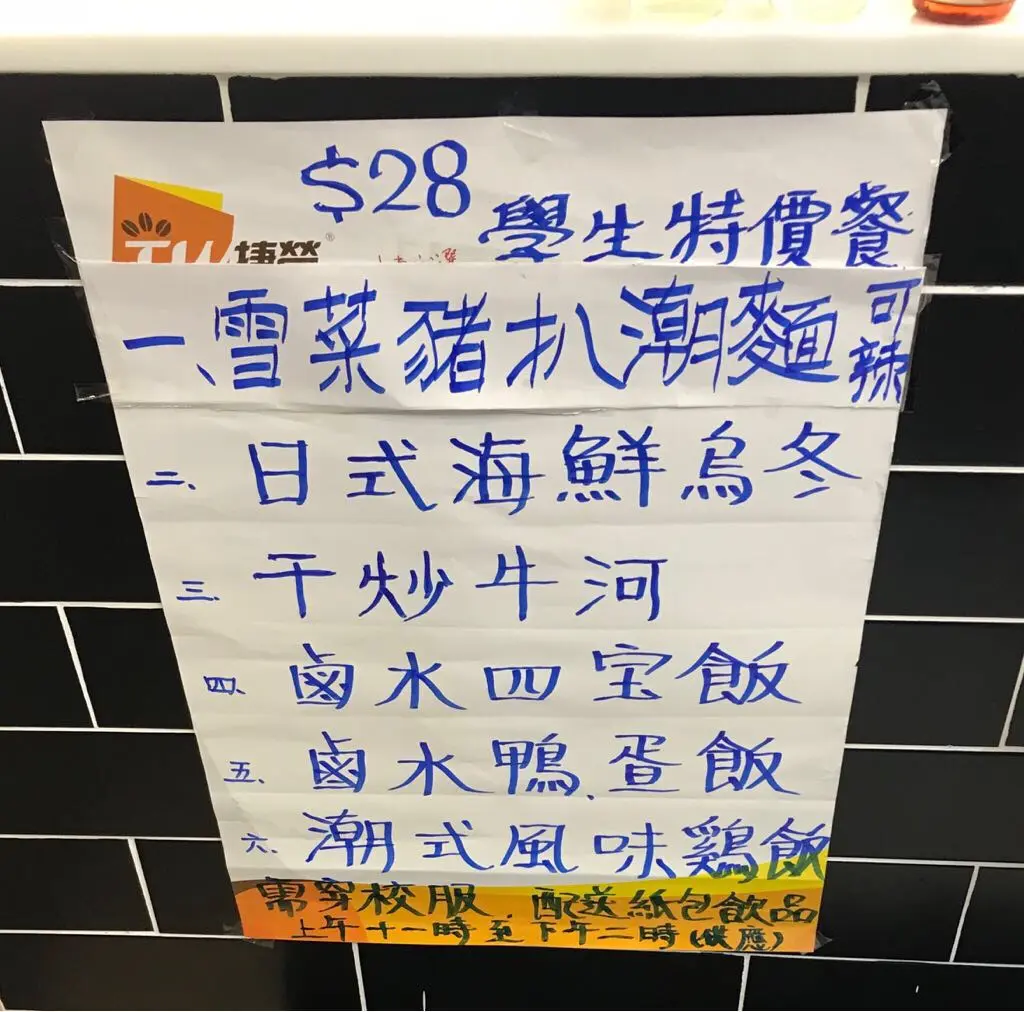 $28
學生特價餐
捷榮®
一、雪菜豬扒潮麵 可辣
二、日式海鮮烏冬
三、干炒牛河
四、鹵水四宝飯
五、鹵水鴨、蛋飯
六、潮式風味鷄飯
需穿校服 配送紙包飲品
上午十一時至下午二時(供應)